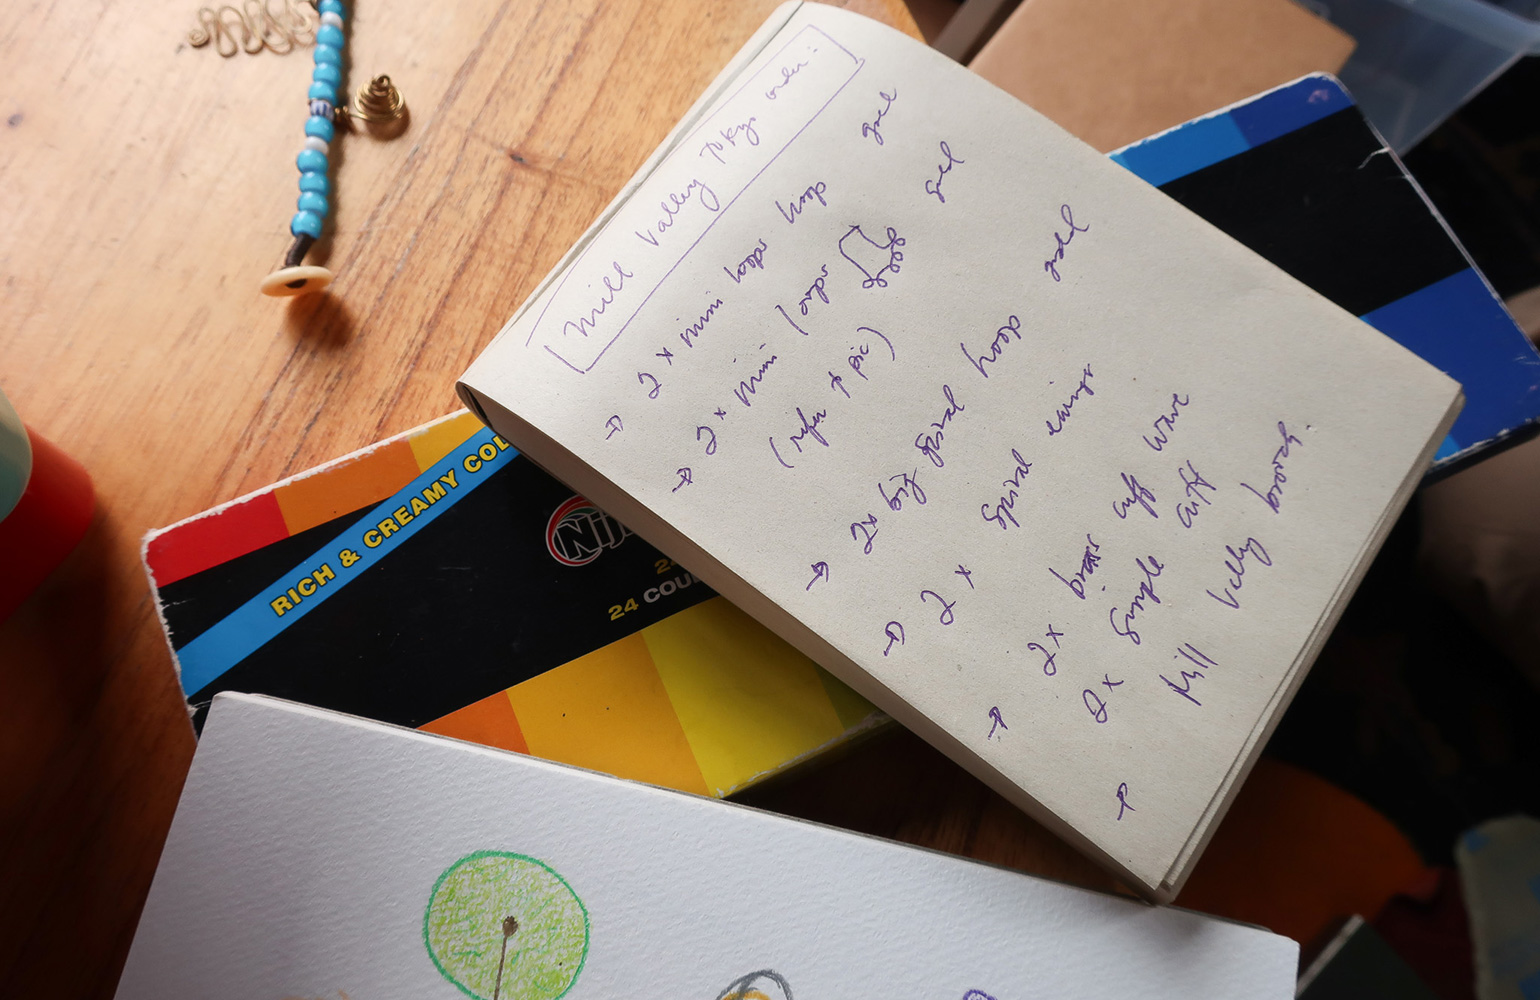 Mill Valley Tokyo order:
→ 2 x mini loops hoop gold
→ 2 x mini loops gold
(refer to pic)
→ 2x big spiral hoops gold
→ 2 x spiral earings
→ 2x brass cuff wave
2x simple cuff
→ Mill Valley brooch.
RICH & CREAMY COL
Nij
24
24 COU